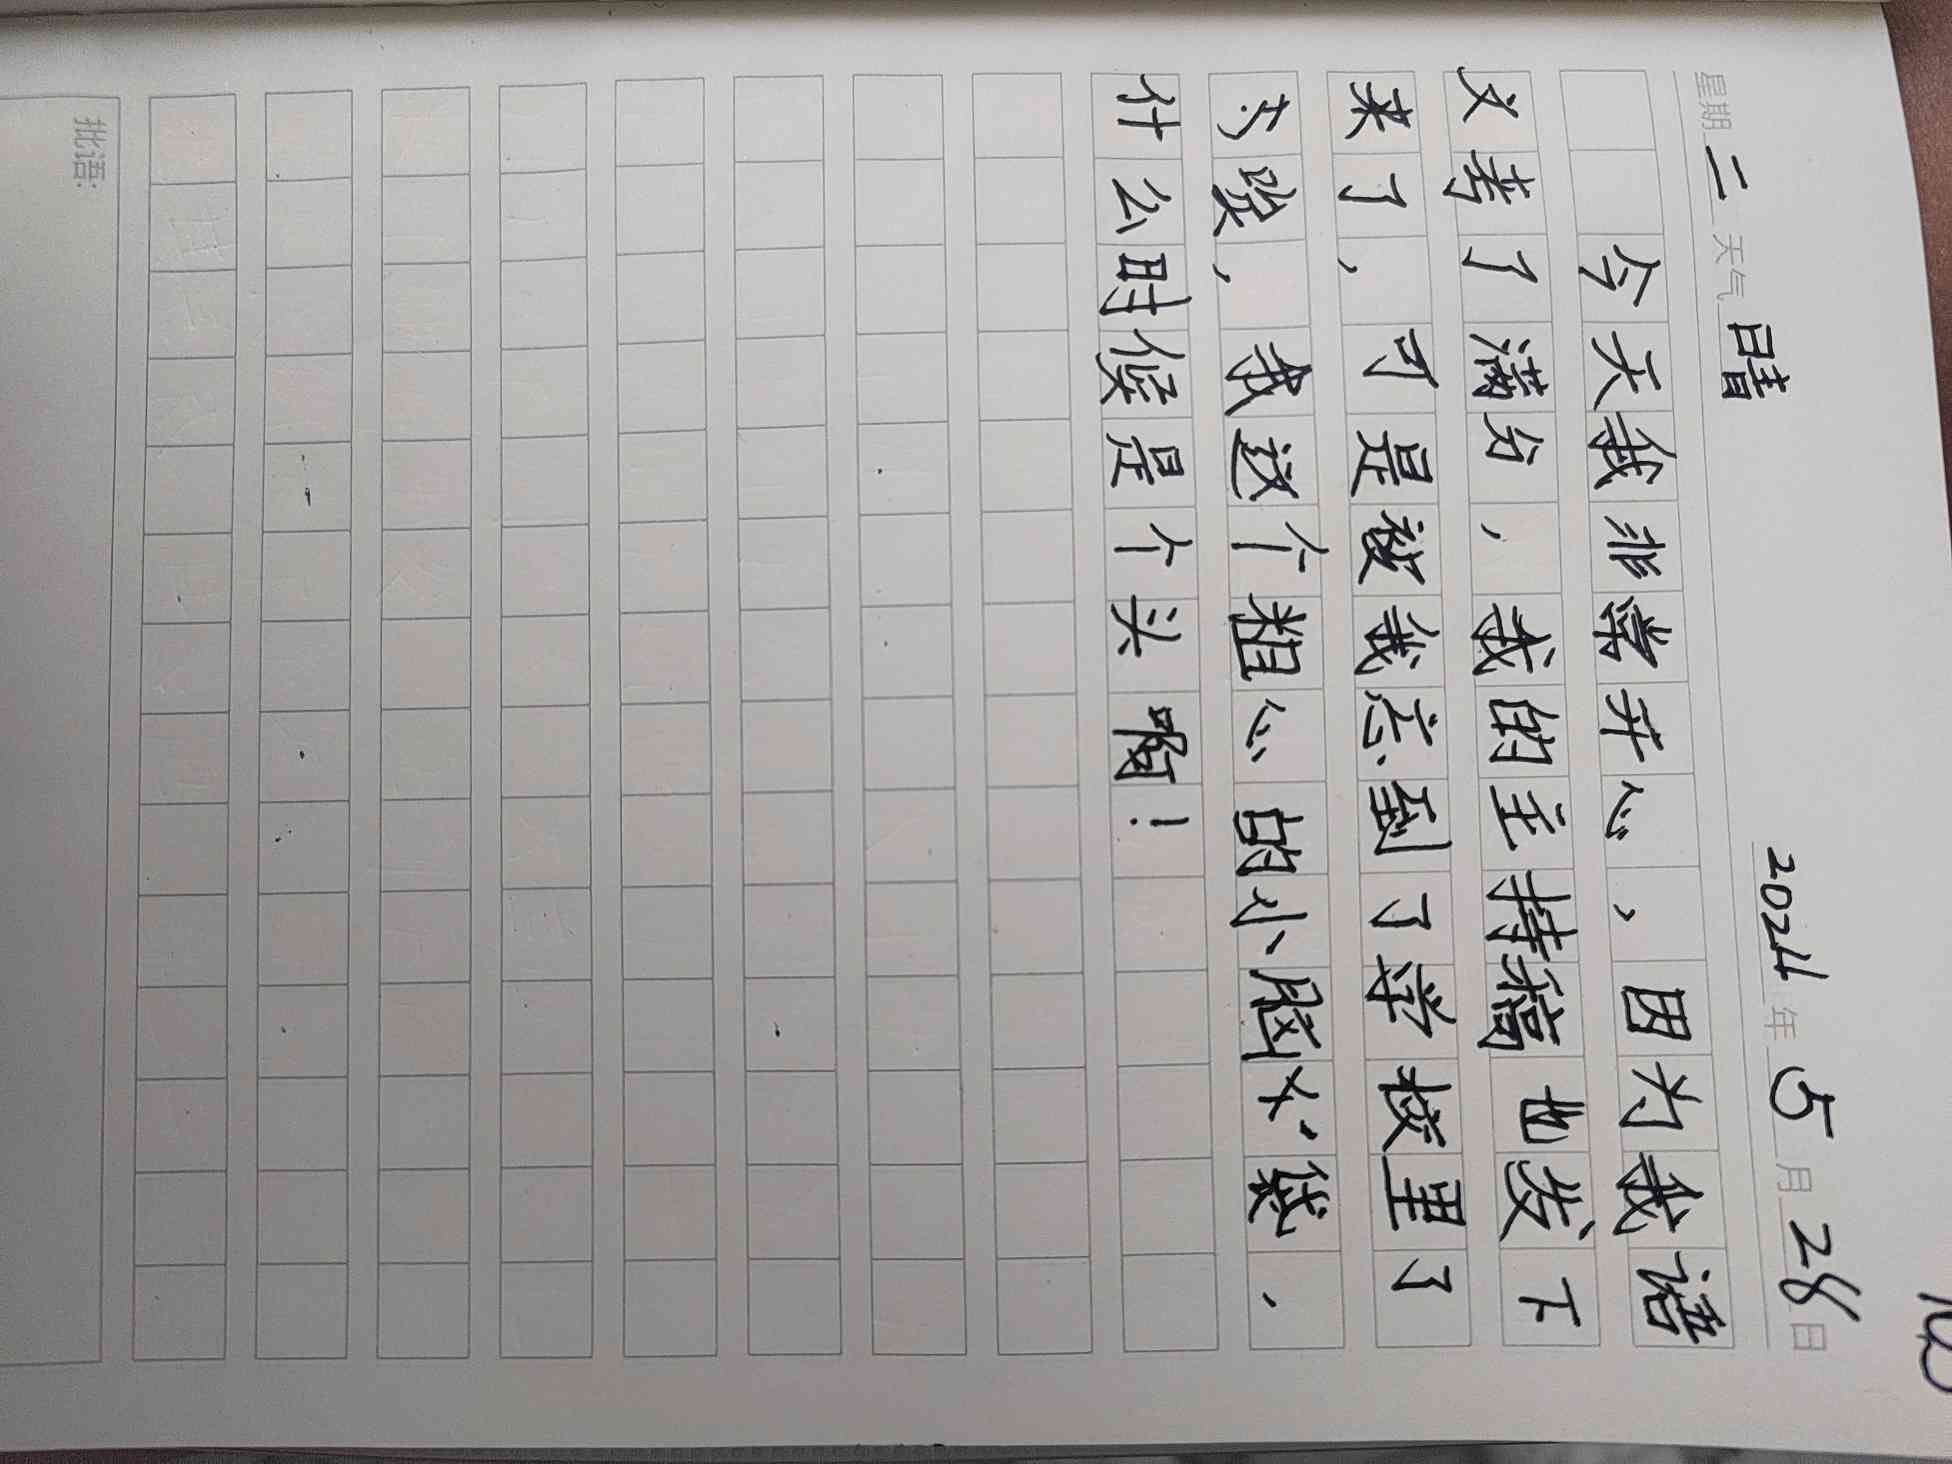 星期二 天气晴 2024年5月28日
今天我非常开心，因为我语
文考了满分，我的主持稿也发下
来了，可是被我忘到了学校里了
，我这个粗心的小脑袋，
什么时候是个头啊！
批语: